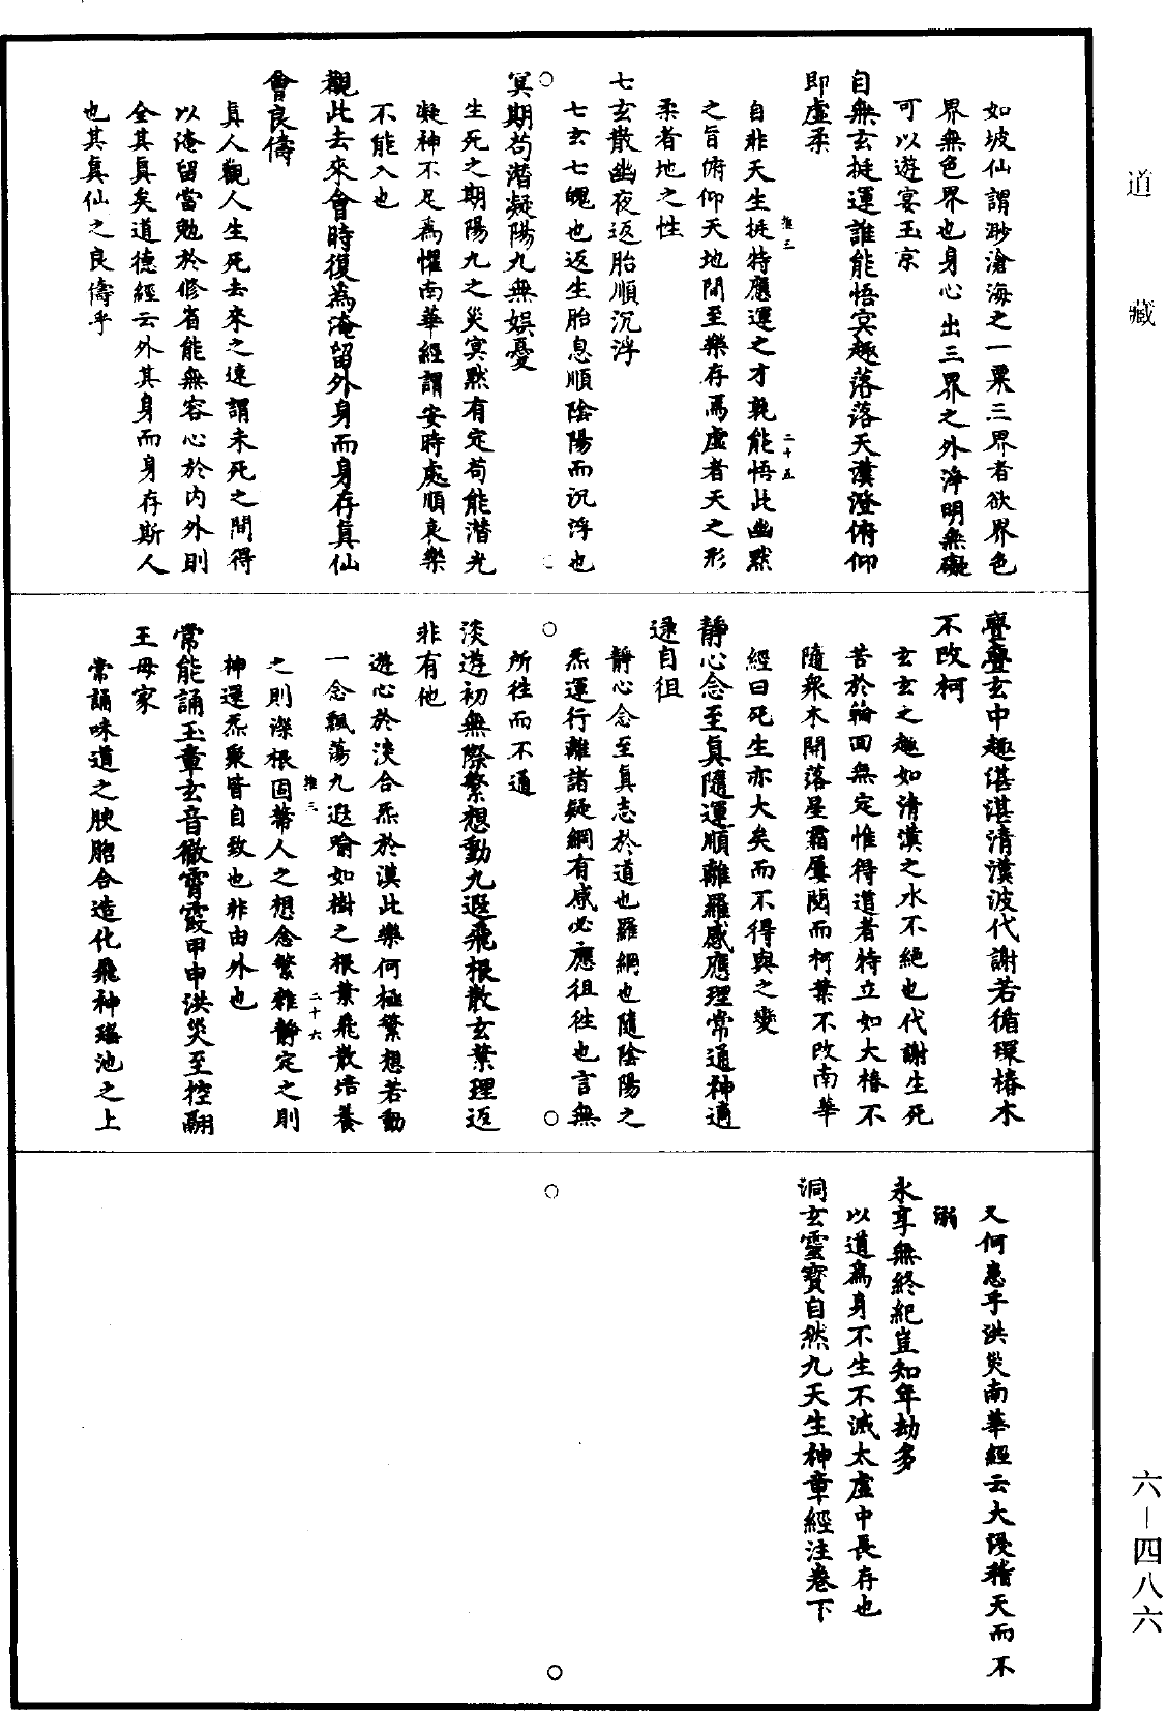 道藏
如坡仙謂渺滄海之一粟三界者欲界色
界無色界也身心出三界之外淨明無礙
可以遊宴玉京
自無玄挺運誰能悟冥趣落落天漢澄俯仰
即虛柔
自非天生挺特應運之才孰能悟此幽默
推三
二十五
之旨俯仰天地間至樂存焉虛者天之形
柔者地之性
七玄散幽夜返胎順沉浮
七玄七魄也返生胎息順陰陽而沉浮也
冥期苟潛凝陽九無娛憂
生死之期陽九之災冥默有定苟能潛光
凝神不足為懼南華經謂安時處順哀樂
不能入也
觀此去來會時復為淹留外身而身存真仙
會良儔
真人觀人生死去來之速謂未死之間得
以淹留當勉於修省能無容心於內外則
全其真矣道德經云外其身而身存斯人
也其真仙之良儔乎
亹亹玄中趣湛湛清漢波代謝若循環椿木
不改柯
玄玄之趣如清漢之水不絕也代謝生死
苦於輪回無定惟得道者特立如大椿不
隨衆木開落星霜屢閱而柯葉不改南華
經曰死生亦大矣而不得與之變
靜心念至真隨運順離羅感應理常通神適
逯自徂
靜心念至真志於道也羅網也隨陰陽之
炁運行離諸疑網有感必應徂往也言無
所往而不通
淡遊初無際繁想動九遐飛根散玄葉理返
非有他
遊心於淡合炁於漠此樂何極繁想若動
一念飄蕩九遐喻如樹之根葉飛散培養
推三
二十六
之則深根固蔕人之想念繁雜靜定之則
神運炁聚皆自致也非由外也
常能誦玉章玄音徹霄霞甲申洪災至控翮
王母家
常誦味道之腴脗合造化飛神瑤池之上
又何患乎洪災南華經云大浸稽天而不
溺
永享無終紀豈知年劫多
以道為身不生不滅太虛中長存也
洞玄靈寶自然九天生神章經注卷下
六-四八六